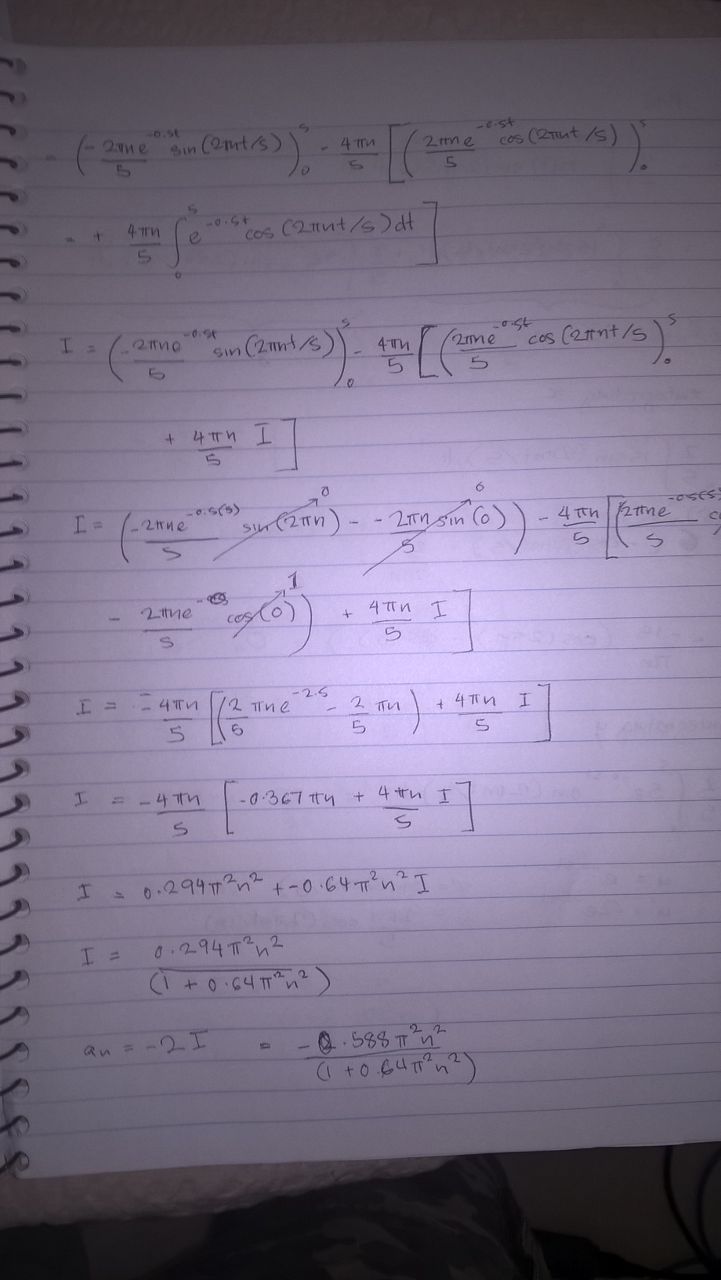 = (-2πne^{-0.5t}/5 sin(2πnt/5))_0^5 - 4πn/5 [(2πne^{-0.5t}/5 cos(2πnt/5))_0^5
= + 4πn/5 ∫_0^5 e^{-0.5t} cos(2πnt/5)dt]
I = (-2πne^{-0.5t}/5 sin(2πnt/5))_0^5 - 4πn/5 [(2πne^{-0.5t}/5 cos(2πnt/5))_0^5
+ 4πn/5 I]
I = (-2πne^{-0.5(5)}/5 sin(2πn) 0 - -2πn/5 sin(0) 0) - 4πn/5 [(2πne^{-0.5(5)}/5
- 2πne^{-0}/5 cos(0) 1) + 4πn/5 I]
I = -4πn/5 [(2/5 πne^{-2.5} - 2/5 πn) + 4πn/5 I]
I = -4πn/5 [-0.367πn + 4πn/5 I]
I = 0.294π²n² + -0.64π²n² I
I = 0.294π²n²/(1 + 0.64π²n²)
an = -2I = -0.588π²n²/(1 + 0.64π²n²)